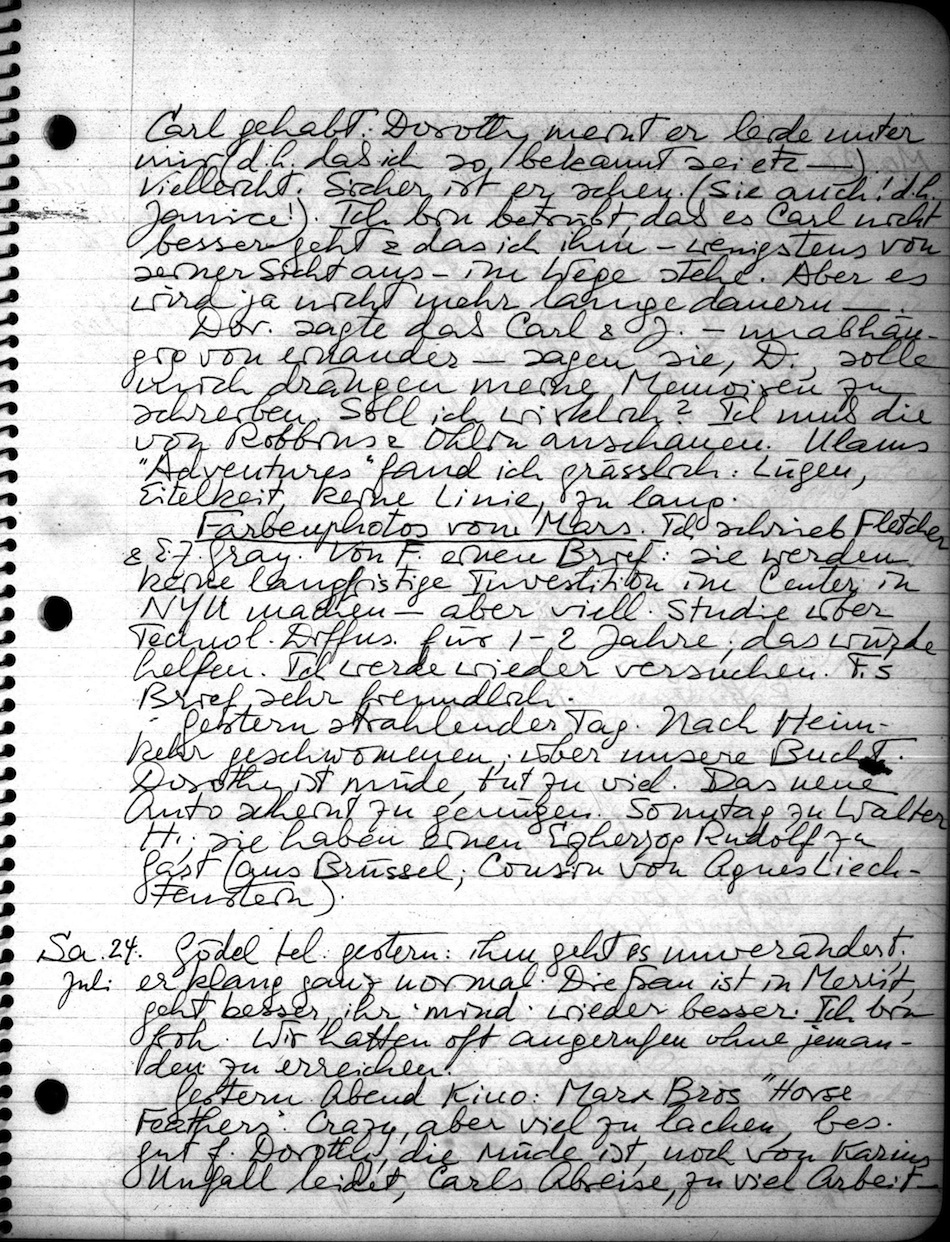 Carl gehabt. Dorothy meint er leide unter
mir (d.h. das ich so bekannt sei etc —)
Vielleicht. Sicher ist er scheu. (Sie auch! d.h.
Janice!). Ich bin betrübt, das es Carl nicht
besser geht & das ich ihm – wenigstens von
seiner Sicht aus – im Wege stehe. Aber es
wird ja nicht mehr lange dauern — .
Dor. sagte das Carl & J. – unabhän-
gig von einander – sagen sie, D., solle
mich drängen meine Memoiren zu
schreiben. Soll ich wirklich? Ich muß die
von Robbins & Ohlin anschauen. Ulams
"Adventures" fand ich grässlich: Lügen,
Eitelkeit, keine Linie, zu lang.
Farbenphotos vom Mars. Ich schrieb Fletcher
& Ed Gray. Von F. einen Brief: sie werden
keine langfristige Investition im Center in
NYU machen – aber viell. Studie über
Technol. Diffus. für 1–2 Jahre; das würde
helfen. Ich werde wieder versuchen. F.s
Brief sehr freundlich.
Gestern strahlender Tag. Nach Heim-
kehr geschwommen, über unsere Bucht.
Dorothy ist müde, tut zu viel. Das neue
Auto scheint zu genügen. Sonntag zu Walter
H.; sie haben einen Erzherzog Rudolf zu
Gast (aus Brüssel; Cousin von Agnes Liech-
tenstein).
Sa. 24. Gödel tel. gestern: ihm geht es unverändert,
Juli er klang ganz normal. Die Frau ist in Merwit,
geht besser, ihr 'mind' wieder besser. Ich bin
froh. Wir hatten oft angerufen ohne jeman-
den zu erreichen.
Gestern Abend Kino: Marx Bros "Horse
Feathers". Crazy, aber viel zu lachen, bes.
gut f. Dorothy, die müde ist, noch von Karins
Unfall leidet, Carls Abreise, zu viel Arbeit –